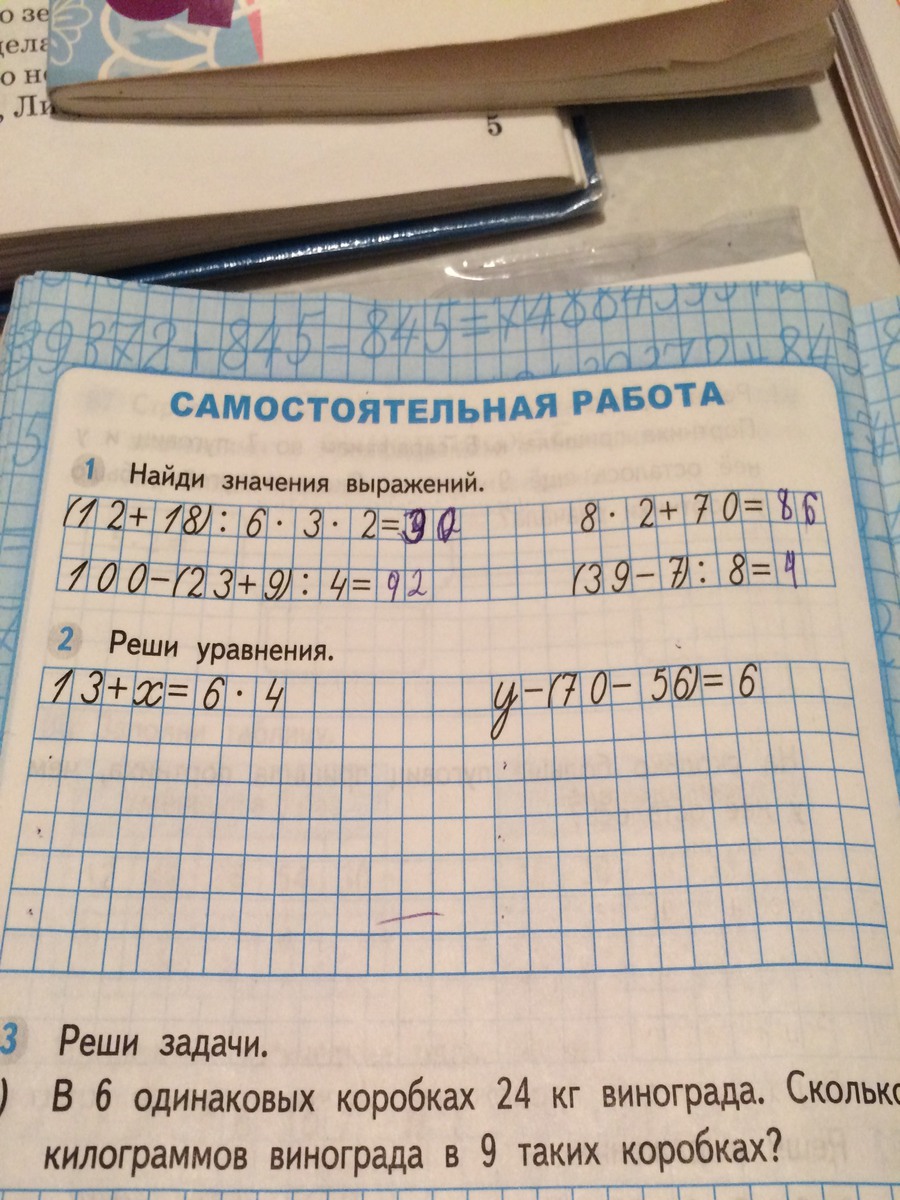 5
САМОСТОЯТЕЛЬНАЯ РАБОТА
1 Найди значения выражений.
(12+18):6·3·2=30 8·2+70=86
100-(23+9):4=92 (39-7):8=4
2 Реши уравнения.
13+x=6·4 y-(70-56)=6
3 Реши задачи.
) В 6 одинаковых коробках 24 кг винограда. Сколько
килограммов винограда в 9 таких коробках?